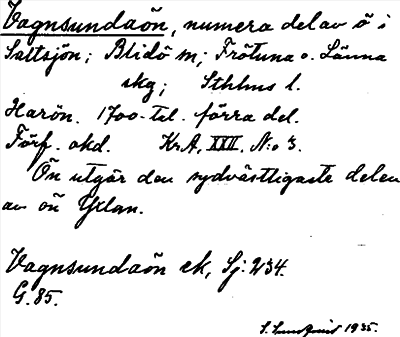 Vagnsundaön, numera del av ö i
Saltsjön; Blidö sn; Frötuna o. Länna
skg; Sthlms l.
Harön. 1700-tal. förra del.
Förf. okd. Kr.A. XXII. N:o 3.
Ön utgör den sydvästligaste delen
av ön Yxlan.
Vagnsundaön ek, Sj: 234.
G. 85.
S. Lundquist 1935.